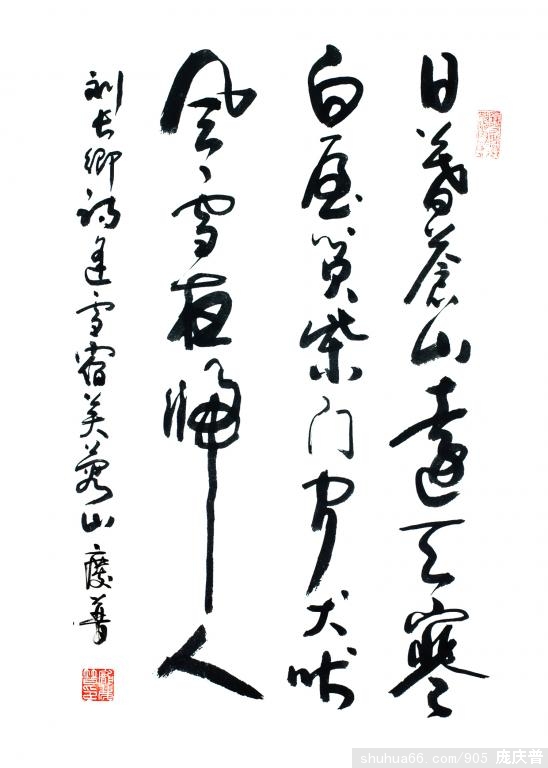 日暮蒼山遠天寒
白屋貧柴门闻犬吠
风雪夜歸人
刘长卿诗逢雪宿芙蓉山 慶普
shuhua66.com/905 庞庆普